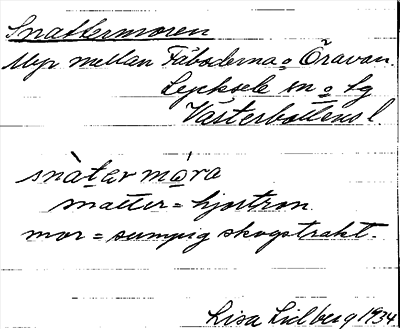 Snattermoren
Myr mellan Fäboderna o Öravan.
Lycksele sn o Lg
Västerbottens l.
snàt̲ar mó̲ra
snatter = hjortron.
mor = sumpig skogstrakt.
Lisa Lidberg 1934